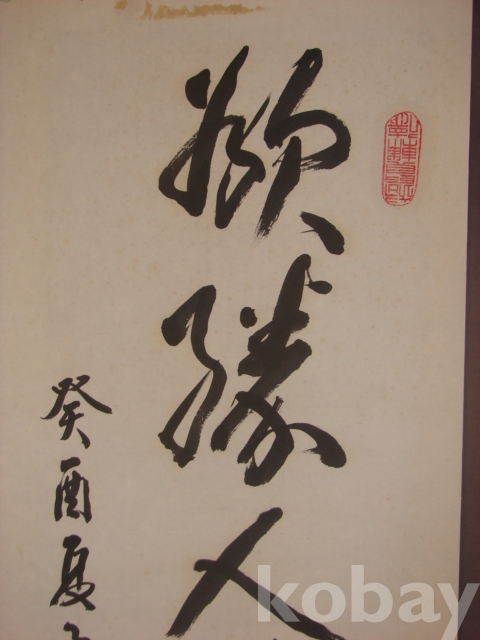 欲勝人
癸酉夏
kobay